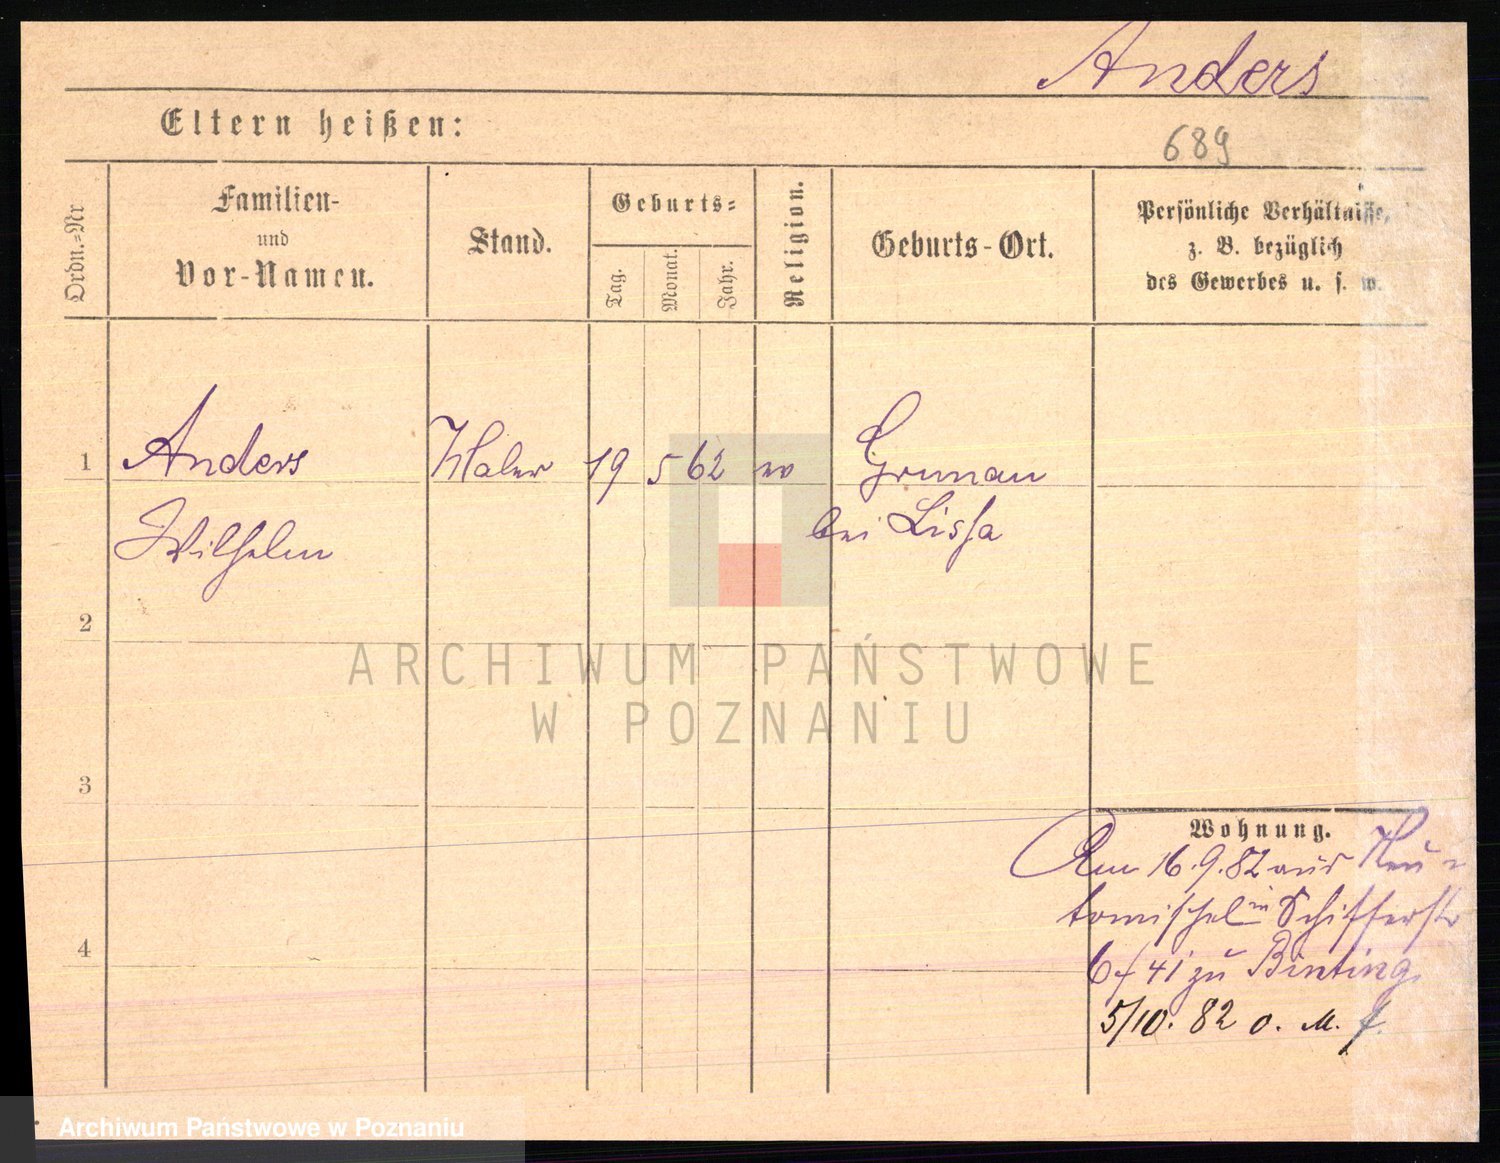 Anders
Eltern heißen:
689
Ordn.=Nr
Familien-
und
Vor-Namen.
Stand.
Geburts=
Tag.
Monat.
Jahr.
Religion.
Geburts-Ort.
Persönliche Verhältnisse,
z. B. bezüglich
des Gewerbes u. s. w.
1
Anders
Maler
19
5
62
ev
Grunau
Wilhelm
bei Lissa
2
ARCHIWUM PAŃSTWOWE
W POZNANIU
3
Wohnung.
Am 16.9.82 aus Neu=
tomischel in Schifferstr
6/41 zu Binting
4
5/10. 82 o. M. f.
Archiwum Państwowe w Poznaniu